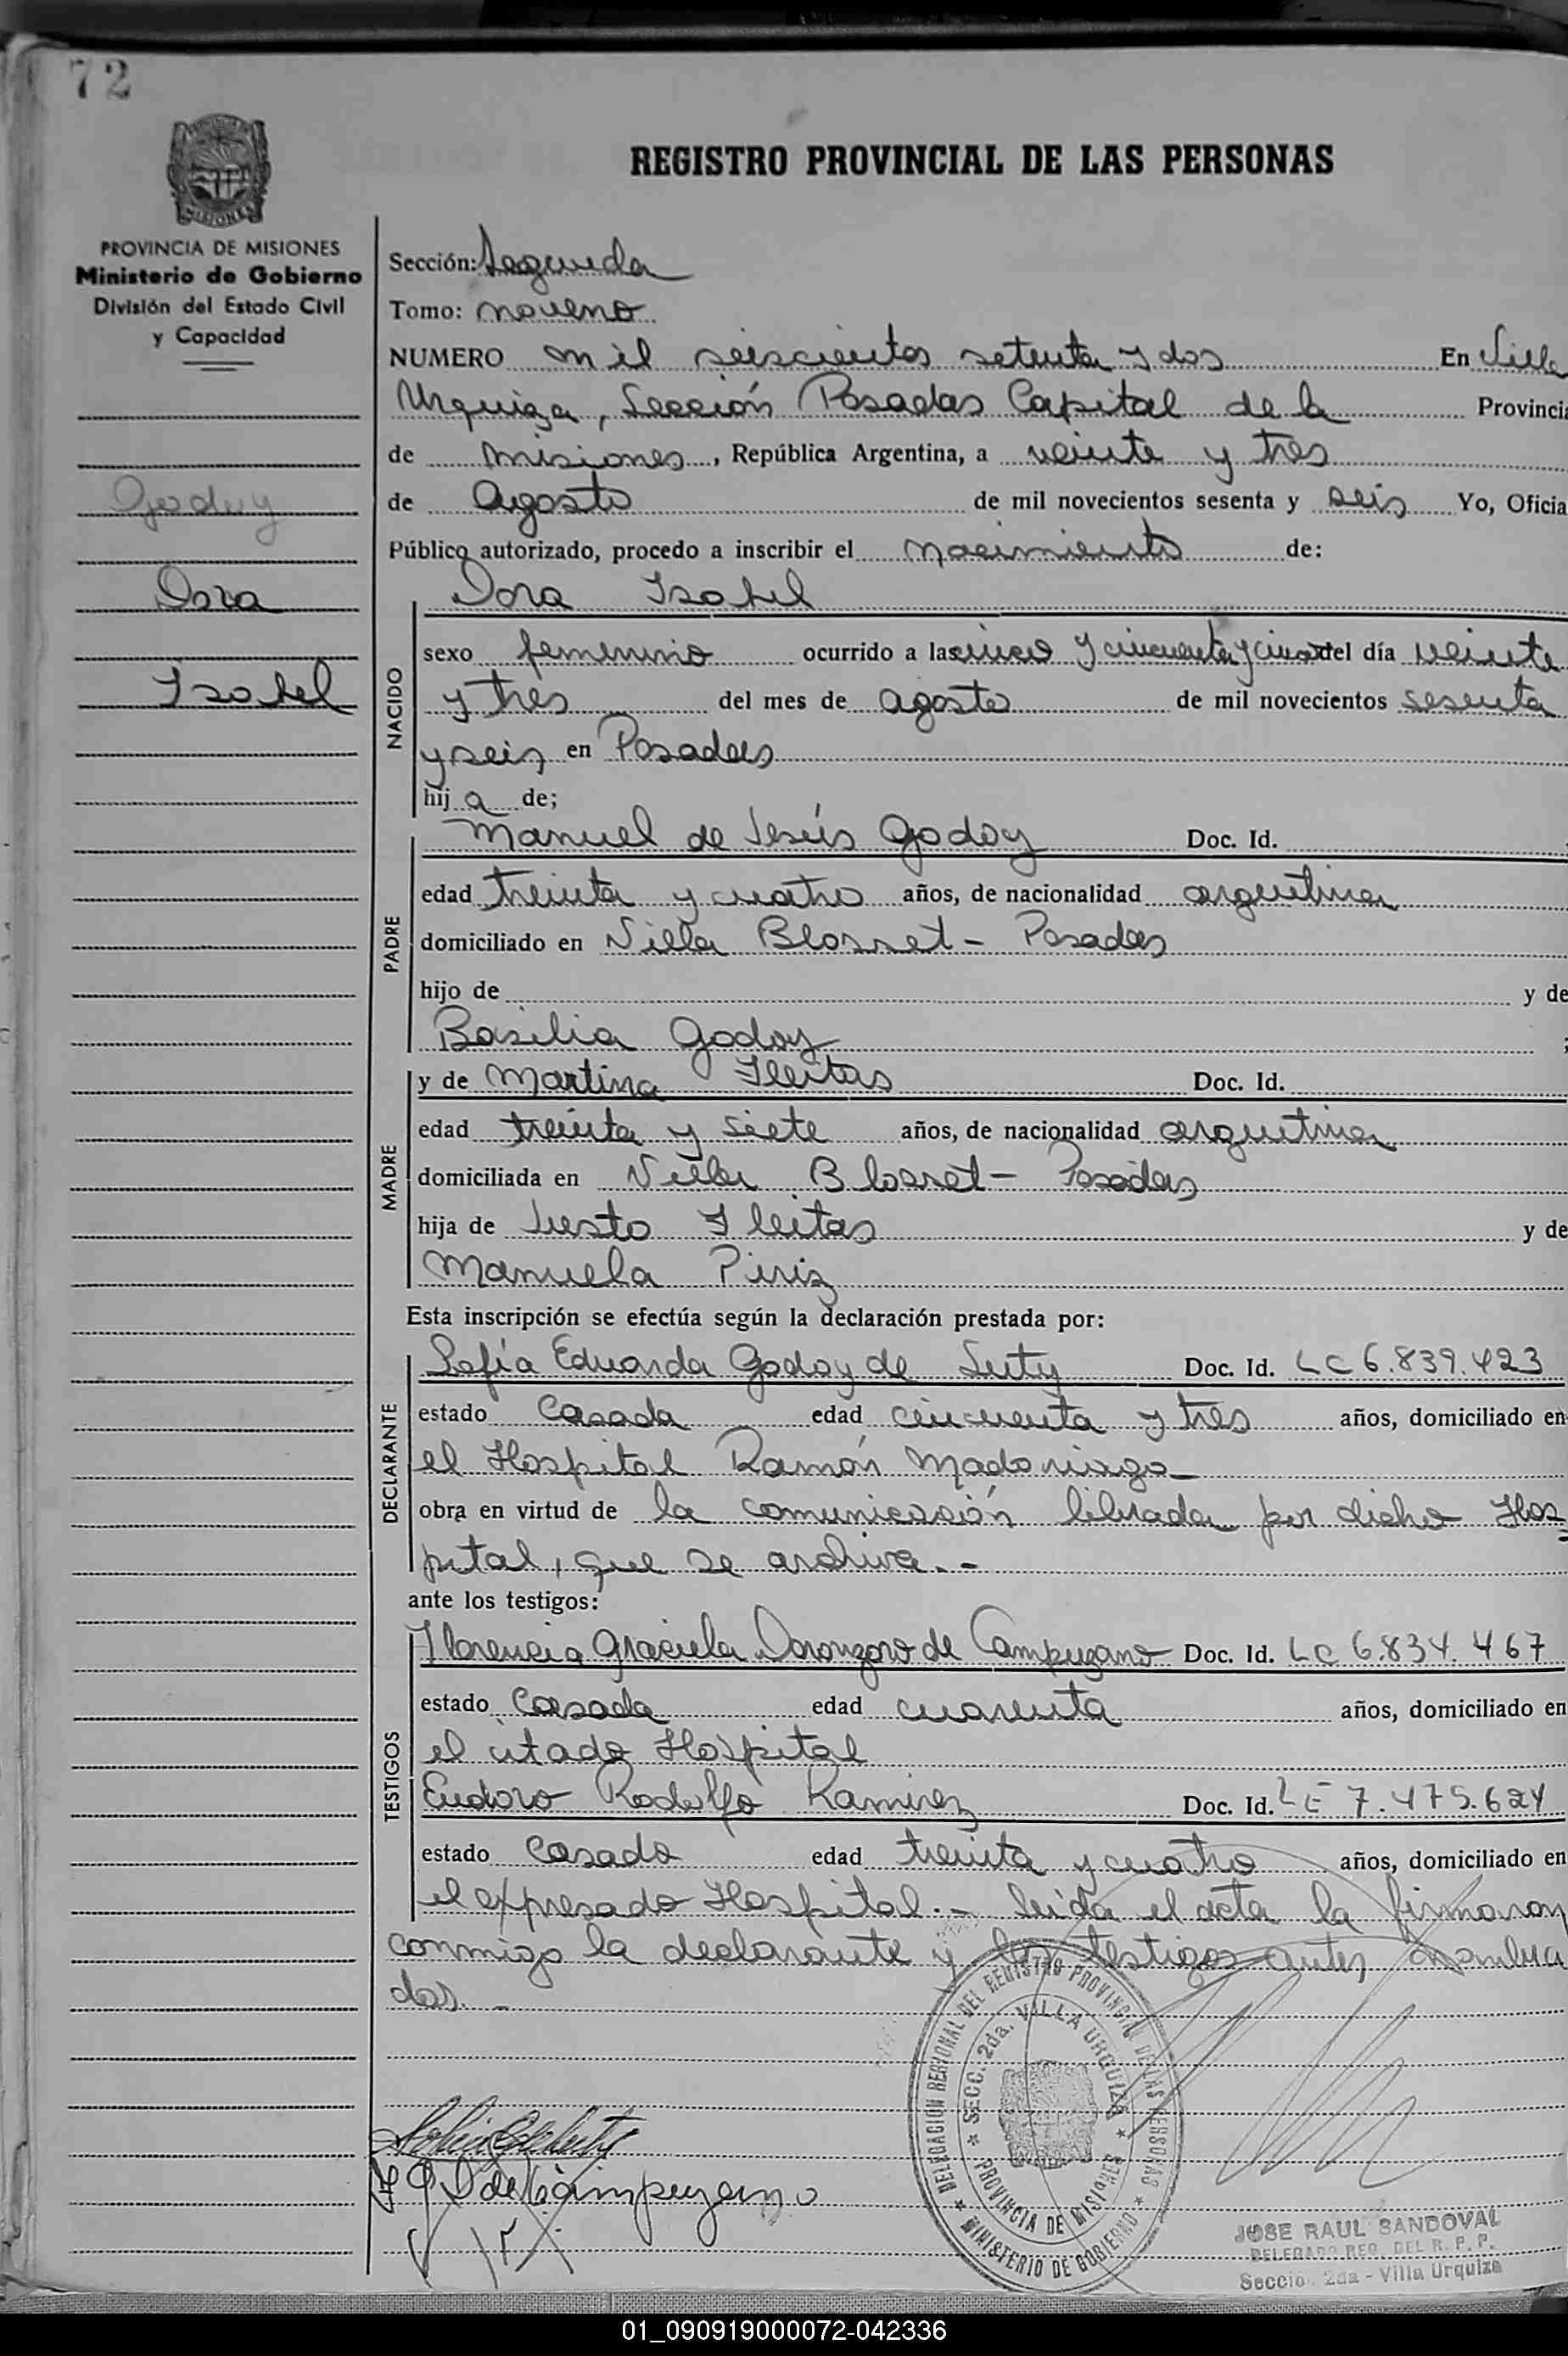 72
REGISTRO PROVINCIAL DE LAS PERSONAS
MISIONES
PROVINCIA DE MISIONES
Ministerio de Gobierno
División del Estado Civil
y Capacidad
Godoy
Dora
Isabel
Sección: Segunda
Tomo: noveno
NUMERO mil seiscientos setenta y dos En Villa
Urquiza, Sección Posadas Capital de la Provincia
de misiones, República Argentina, a veinte y tres
de Agosto de mil novecientos sesenta y seis Yo, Oficia
Público autorizado, procedo a inscribir el nacimiento de:
Dora Isabel
NACIDO
sexo femenino ocurrido a las cinco y cincuenta y cinco del día veinte
y tres del mes de agosto de mil novecientos sesenta
y seis en Posadas
hij a de;
PADRE
Manuel de Jesús Godoy Doc. Id.
edad treinta y cuatro años, de nacionalidad argentina
domiciliado en Villa Blosset - Posadas
hijo de y de
Basilia Godoy ;
MADRE
y de Martina Fleitas Doc. Id.
edad treinta y siete años, de nacionalidad argentina
domiciliada en Villa Blosset - Posadas
hija de Justo Fleitas y de
Manuela Piriz
Esta inscripción se efectúa según la declaración prestada por:
DECLARANTE
Sofía Eduarda Godoy de Luty Doc. Id. LC 6.839.423
estado Casada edad cincuenta y tres años, domiciliado en
el Hospital Ramón Madariaga
obra en virtud de la comunicación librada por dicho Hos=
pital, que se archiva.-
ante los testigos:
TESTIGOS
Florencia Graciela Doronzoro de Campuzano Doc. Id. LC 6.834.467
estado Casada edad cuarenta años, domiciliado en
el citado Hospital
Eudoro Rodolfo Ramirez Doc. Id. LE 7.475.624
estado Casado edad treinta y cuatro años, domiciliado en
el expresado Hospital.- leida el acta la firmaron
conmigo la declarante y los testigos antes nombra
dos. -
DELEGACIÓN REGIONAL DEL REGISTRO PROVINCIAL DE LAS PERSONAS
SECC. 2da. VILLA URQUIZA
PROVINCIA DE MISIONES
MINISTERIO DE GOBIERNO
F G D de Campuzano
JOSE RAUL SANDOVAL
DELEGADO REG. DEL R. P. P.
Sección 2da - Villa Urquiza
01_090919000072-042336